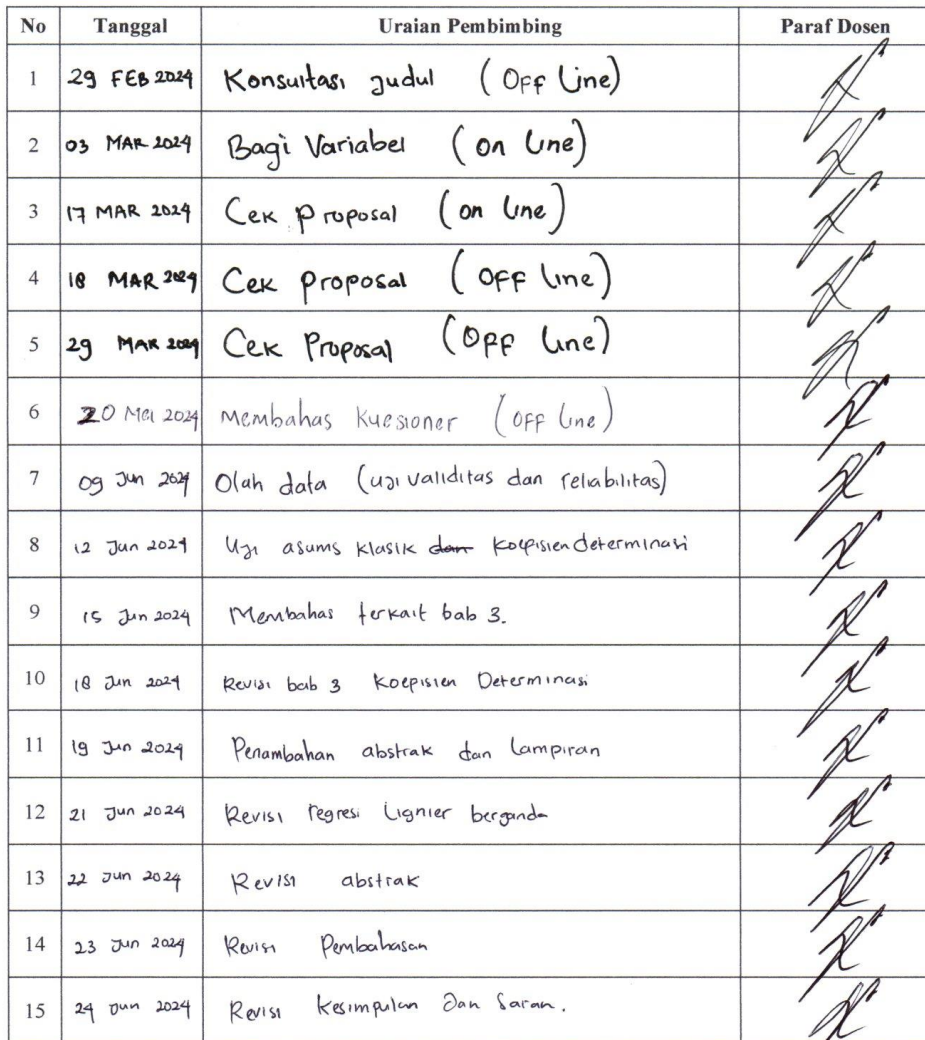 No Tanggal Uraian Pembimbing Paraf Dosen
1 29 FEB 2024 Konsultasi Judul (Off Line)
2 03 MAR 2024 Bagi Variabel (on line)
3 17 MAR 2024 Cek proposal (on line)
4 18 MAR 2024 Cek proposal (Off line)
5 29 MAR 2024 Cek Proposal (Off line)
6 20 Mei 2024 Membahas Kuesioner (Off line)
7 09 Jun 2024 Olah data (uji validitas dan reliabilitas)
8 12 Jun 2024 Uji asums klasik dan koepisien determinasi
9 15 Jun 2024 Membahas terkait bab 3.
10 18 Jun 2024 Revisi bab 3 Koepisien Determinasi
11 19 Jun 2024 Penambahan abstrak dan lampiran
12 21 Jun 2024 Revisi regresi Lignier berganda
13 22 Jun 2024 Revisi abstrak
14 23 Jun 2024 Revisi Pembahasan
15 24 Jun 2024 Revisi Kesimpulan Dan Saran.